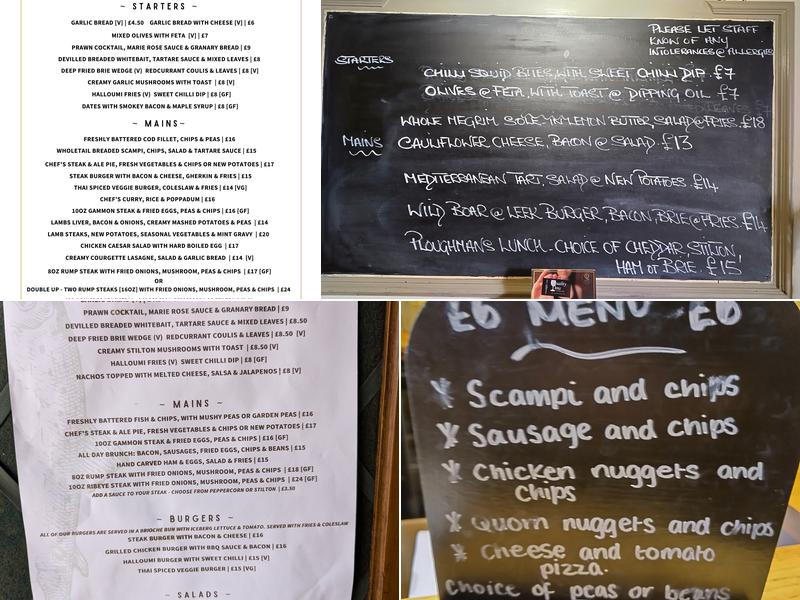 ~ STARTERS ~
GARLIC BREAD [V] | £4.50 GARLIC BREAD WITH CHEESE [V] | £6
MIXED OLIVES WITH FETA [V] | £7
PRAWN COCKTAIL, MARIE ROSE SAUCE & GRANARY BREAD | £9
DEVILLED BREADED WHITEBAIT, TARTARE SAUCE & MIXED LEAVES | £8
DEEP FRIED BRIE WEDGE (V) REDCURRANT COULIS & LEAVES | £8 [V]
CREAMY GARLIC MUSHROOMS WITH TOAST | £8 [V]
HALLOUMI FRIES (V) SWEET CHILLI DIP | £8 [GF]
DATES WITH SMOKEY BACON & MAPLE SYRUP | £8 [GF]
~ MAINS ~
FRESHLY BATTERED COD FILLET, CHIPS & PEAS | £16
WHOLETAIL BREADED SCAMPI, CHIPS, SALAD & TARTARE SAUCE | £15
CHEF'S STEAK & ALE PIE, FRESH VEGETABLES & CHIPS OR NEW POTATOES | £17
STEAK BURGER WITH BACON & CHEESE, GHERKIN & FRIES | £15
THAI SPICED VEGGIE BURGER, COLESLAW & FRIES | £14 [VG]
CHEF'S CURRY, RICE & POPPADUM | £16
10OZ GAMMON STEAK & FRIED EGGS, PEAS & CHIPS | £16 [GF]
LAMBS LIVER, BACON & ONIONS, CREAMY MASHED POTATOES & PEAS | £14
LAMB STEAKS, NEW POTATOES, SEASONAL VEGETABLES & MINT GRAVY | £20
CHICKEN CAESAR SALAD WITH HARD BOILED EGG | £17
CREAMY COURGETTE LASAGNE, SALAD & GARLIC BREAD | £14 [V]
8OZ RUMP STEAK WITH FRIED ONIONS, MUSHROOM, PEAS & CHIPS | £17 [GF]
OR
DOUBLE UP - TWO RUMP STEAKS [16OZ] WITH FRIED ONIONS, MUSHROOM, PEAS & CHIPS | £24
PLEASE LET STAFF
KNOW OF ANY
INTOLERANCES @ ALLERGIES
STARTERS
CHILLI SQUID BITES, WITH SWEET CHILLI DIP. £7
OLIVES @ FETA, WITH TOAST @ DIPPING OIL £7
WHOLE MEGRIM SOLE IN LEMON BUTTER, SALAD @ FRIES. £18
MAINS CAULIFLOWER CHEESE, BACON @ SALAD. £13
MEDITERRANEAN TART, SALAD @ NEW POTATOES. £14
WILD BOAR @ LEEK BURGER, BACON, BRIE @ FRIES. £14
PLOUGHMANS LUNCH - CHOICE OF CHEDDAR, STILTON,
HAM OR BRIE. £15
PRAWN COCKTAIL, MARIE ROSE SAUCE & GRANARY BREAD | £9
DEVILLED BREADED WHITEBAIT, TARTARE SAUCE & MIXED LEAVES | £8.50
DEEP FRIED BRIE WEDGE (V) REDCURRANT COULIS & LEAVES | £8.50 [V]
CREAMY STILTON MUSHROOMS WITH TOAST | £8.50 [V]
HALLOUMI FRIES (V) SWEET CHILLI DIP | £8 [GF]
NACHOS TOPPED WITH MELTED CHEESE, SALSA & JALAPENOS | £8 [V]
~ MAINS ~
FRESHLY BATTERED FISH & CHIPS, WITH MUSHY PEAS OR GARDEN PEAS | £16
CHEF'S STEAK & ALE PIE, FRESH VEGETABLES & CHIPS OR NEW POTATOES | £17
10OZ GAMMON STEAK & FRIED EGGS, PEAS & CHIPS | £16 [GF]
ALL DAY BRUNCH: BACON, SAUSAGES, FRIED EGGS, CHIPS & BEANS | £15
HAND CARVED HAM & EGGS, SALAD & FRIES | £15
8OZ RUMP STEAK WITH FRIED ONIONS, MUSHROOM, PEAS & CHIPS | £18 [GF]
10OZ RIBEYE STEAK WITH FRIED ONIONS, MUSHROOM, PEAS & CHIPS | £24 [GF]
ADD A SAUCE TO YOUR STEAK - CHOOSE FROM PEPPERCORN OR STILTON | £3.50
~ BURGERS ~
ALL OF OUR BURGERS ARE SERVED IN A BRIOCHE BUN WITH ICEBERG LETTUCE & TOMATO. SERVED WITH FRIES & COLESLAW
STEAK BURGER WITH BACON & CHEESE | £16
GRILLED CHICKEN BURGER WITH BBQ SAUCE & BACON | £16
HALLOUMI BURGER WITH SWEET CHILLI | £15 [V]
THAI SPICED VEGGIE BURGER | £15 [VG]
~ SALADS ~
£6 MENU £6
Scampi and chips
Sausage and chips
Chicken nuggets and
chips
Quorn nuggets and chips
Cheese and tomato
pizza.
Choice of peas or beans